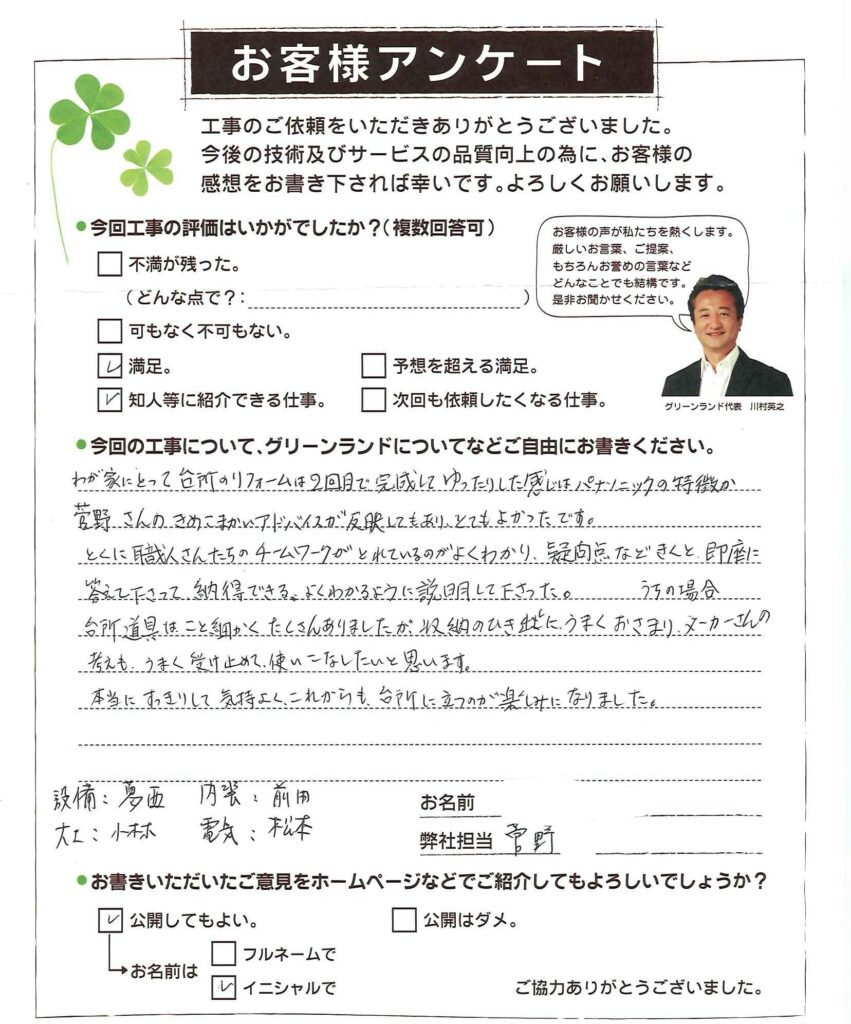 お客様アンケート
工事のご依頼をいただきありがとうございました。
今後の技術及びサービスの品質向上の為に、お客様の
感想をお書き下されば幸いです。よろしくお願いします。
●今回工事の評価はいかがでしたか？（複数回答可）
不満が残った。
（どんな点で？： ）
可もなく不可もない。
満足。 予想を超える満足。
知人等に紹介できる仕事。 次回も依頼したくなる仕事。
お客様の声が私たちを熱くします。
厳しいお言葉、ご提案、
もちろんお誉めの言葉など
どんなことでも結構です。
是非お聞かせください。
グリーンランド代表 川村英之
●今回の工事について、グリーンランドについてなどご自由にお書きください。
わが家にとって台所のリフォームは2回目で完成してゆったりした感じはパナソニックの特徴か
菅野さんのきめこまかいアドバイスが反映してもあり、とてもよかったです。
とくに職人さんたちのチームワークがとれているのがよくわかり、疑問点などきくと、即座に
答えて下さって、納得できる、よくわかるように説明して下さった。 うちの場合
台所道具はこと細かくたくさんありましたが、収納のひき出しに、うまくおさまり、メーカーさんの
考えも、うまく受け止めて、使いこなしたいと思います。
本当にすっきりして気持よく、これからも、台所に立つのが楽しみになりました。
設備：葛西 内装：前田
大工：小林 電気：松本
お名前
弊社担当 菅野
●お書きいただいたご意見をホームページなどでご紹介してもよろしいでしょうか？
公開してもよい。 公開はダメ。
お名前は フルネームで
イニシャルで
ご協力ありがとうございました。